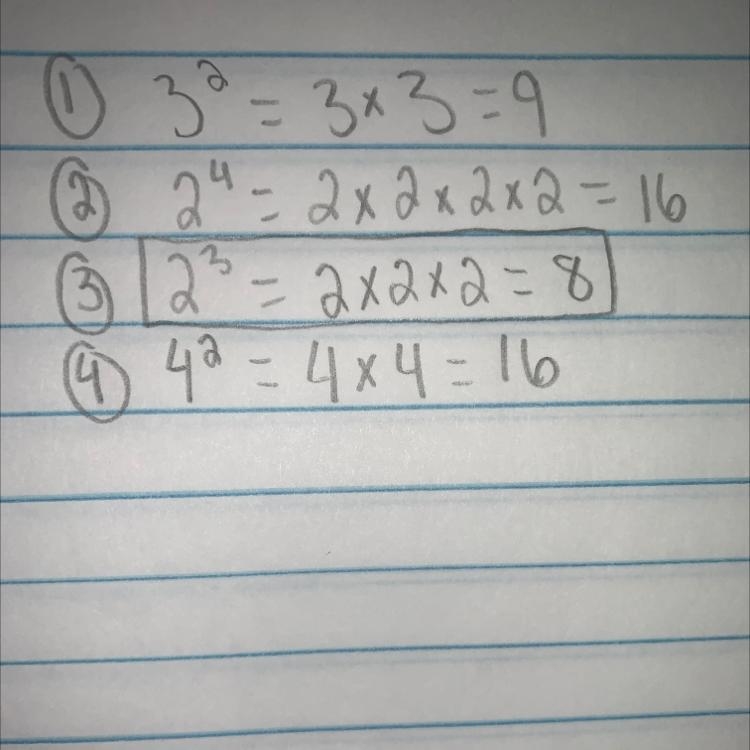 ① 3² = 3 × 3 = 9
② 2⁴ = 2 × 2 × 2 × 2 = 16
③ 2³ = 2 × 2 × 2 = 8
④ 4² = 4 × 4 = 16